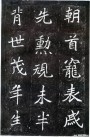 朝首寵表戚
先勲規未半
背世茂年生